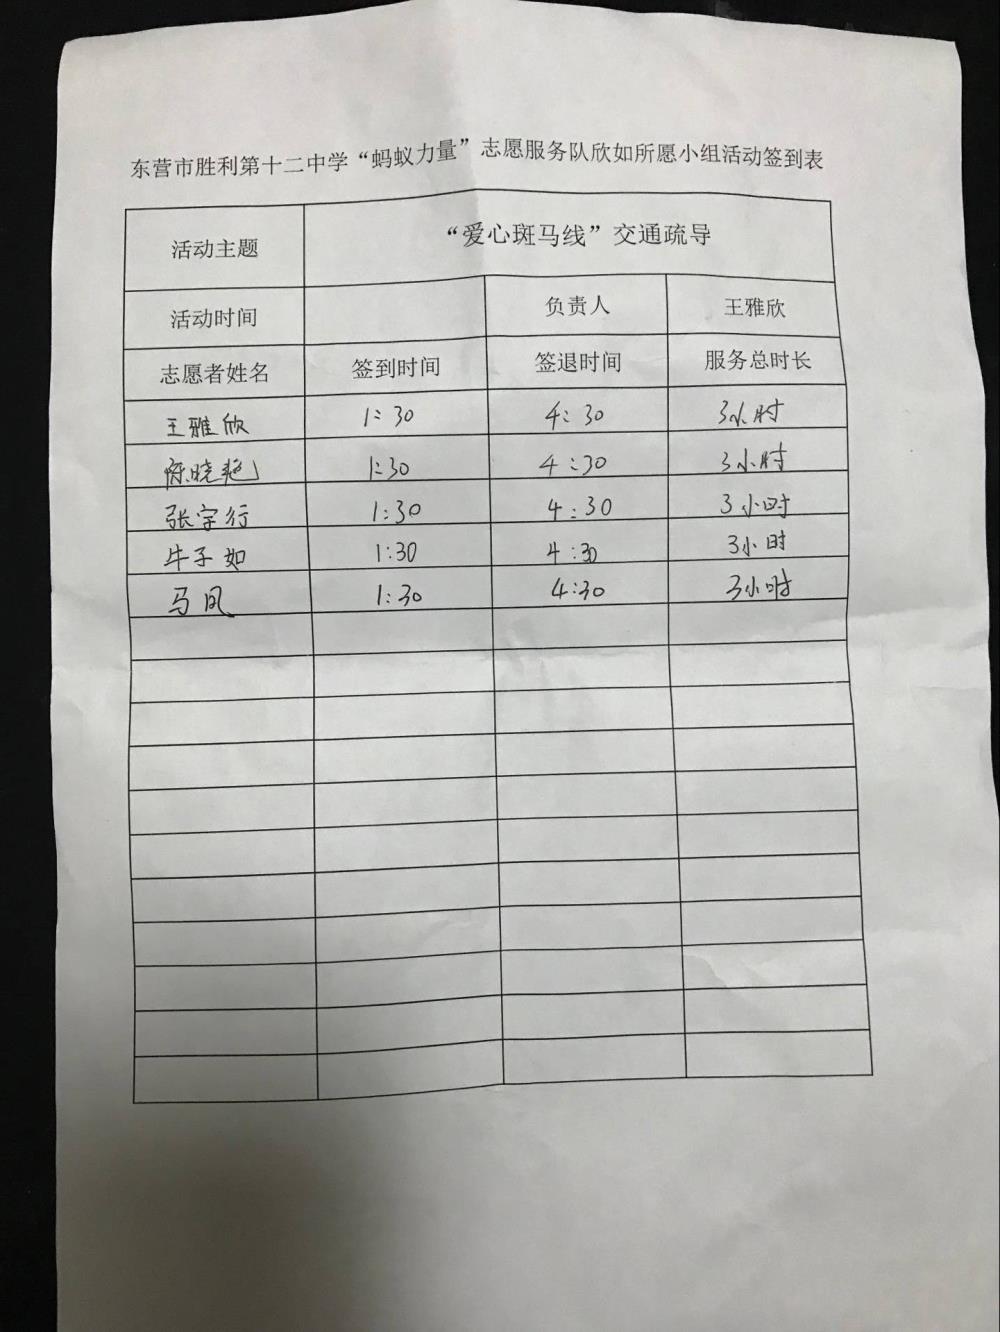 东营市胜利第十二中学“蚂蚁力量”志愿服务队欣如所愿小组活动签到表
活动主题 “爱心斑马线”交通疏导
活动时间 负责人 王雅欣
志愿者姓名 签到时间 签退时间 服务总时长
王雅欣 1:30 4:30 3小时
陈晓艳 1:30 4:30 3小时
张宇行 1:30 4:30 3小时
牛子如 1:30 4:30 3小时
马凤 1:30 4:30 3小时